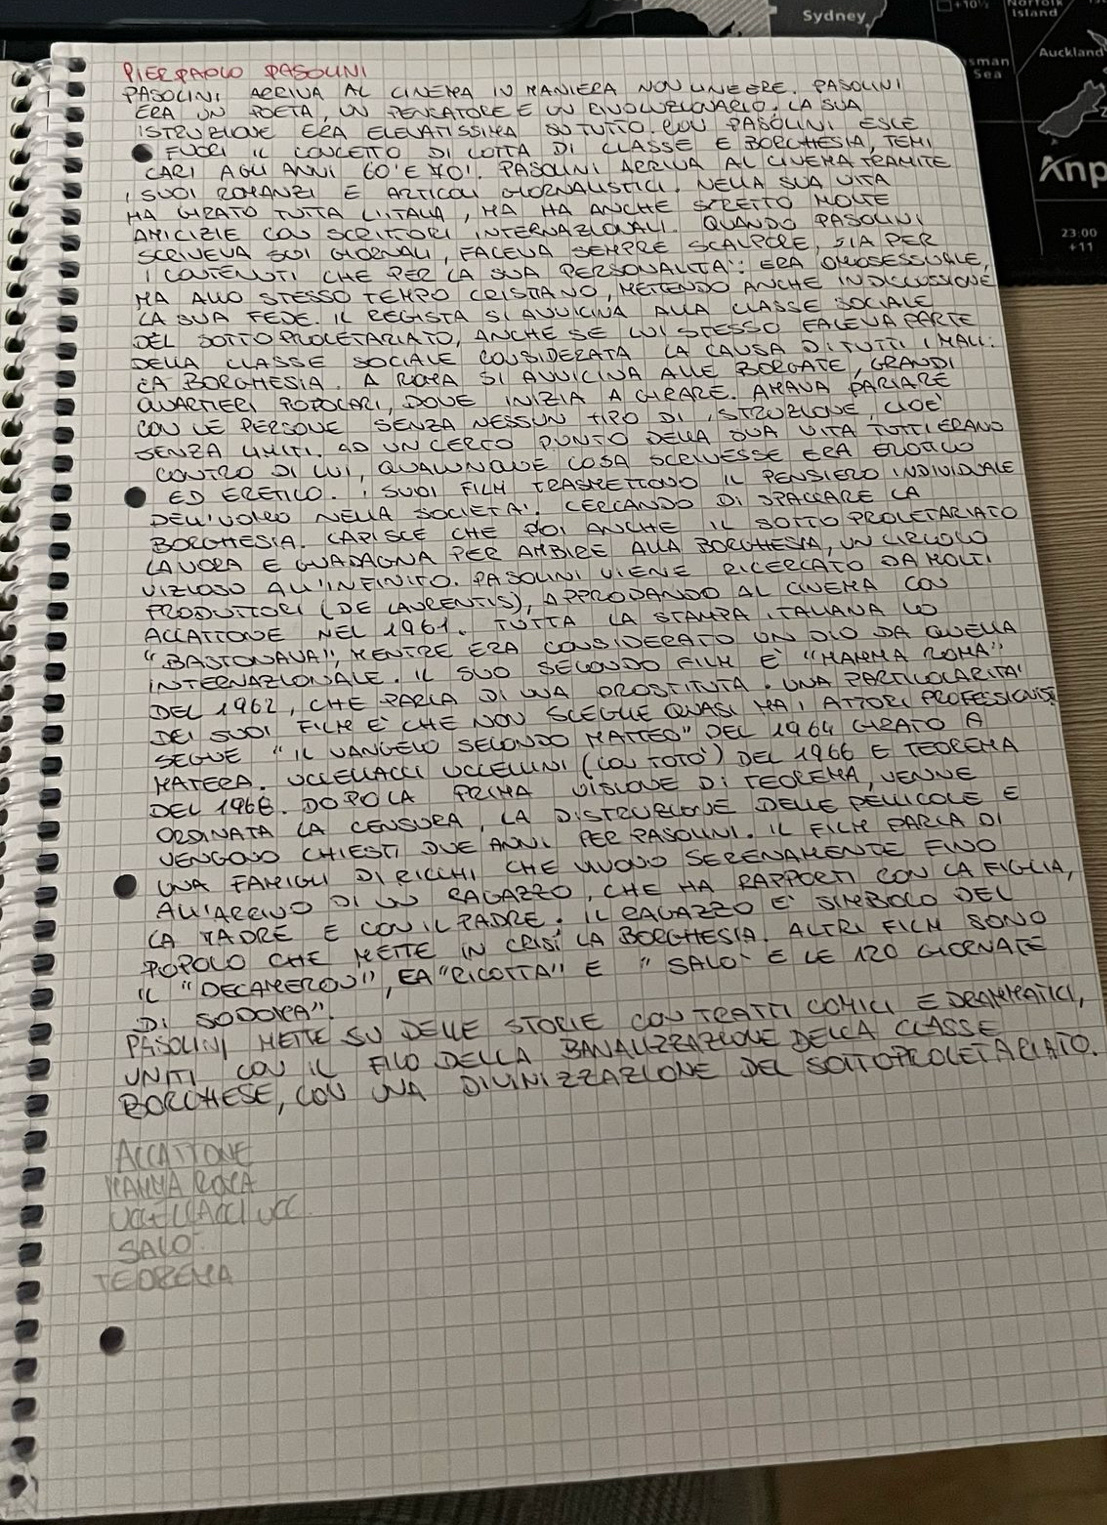 Sydney
+10½
Norfolk
Island
Auckland
sman
Sea
Anp
23:00
+11
PIER PAOLO PASOLINI
PASOLINI ARRIVA AL CINEMA IN MANIERA NON LINEARE. PASOLINI
ERA UN POETA, UN PENSATORE E UN RIVOLUZIONARIO. LA SUA
ISTRUZIONE ERA ELEVATISSIMA SU TUTTO. CON PASOLINI ESCE
FUORI IL CONCETTO DI LOTTA DI CLASSE E BORGHESIA, TEMI
CARI AGLI ANNI 60' E 70'. PASOLINI ARRIVA AL CINEMA TRAMITE
I SUOI ROMANZI E ARTICOLI GIORNALISTICI. NELLA SUA VITA
HA GIRATO TUTTA L'ITALIA, MA HA ANCHE STRETTO MOLTE
AMICIZIE CON SCRITTORI INTERNAZIONALI. QUANDO PASOLINI
SCRIVEVA SUI GIORNALI, FACEVA SEMPRE SCALPORE, SIA PER
I CONTENUTI CHE PER LA SUA PERSONALITA': ERA OMOSESSUALE,
MA ALLO STESSO TEMPO CRISTIANO, METTENDO ANCHE IN DISCUSSIONE
LA SUA FEDE. IL REGISTA SI AVVICINA ALLA CLASSE SOCIALE
DEL SOTTOPROLETARIATO, ANCHE SE LUI STESSO FACEVA PARTE
DELLA CLASSE SOCIALE CONSIDERATA LA CAUSA DI TUTTI I MALI:
LA BORGHESIA. A ROMA SI AVVICINA ALLE BORGATE, GRANDI
QUARTIERI POPOLARI, DOVE INIZIA A GIRARE. AMAVA PARLARE
CON LE PERSONE SENZA NESSUN TIPO DI ISTRUZIONE, CIOE'
SENZA LIMITI. AD UN CERTO PUNTO DELLA SUA VITA TUTTI ERANO
CONTRO DI LUI, QUALUNQUE COSA SCRIVESSE ERA EROTICO
ED ERETICO. I SUOI FILM TRASMETTONO IL PENSIERO INDIVIDUALE
DELL'UOMO NELLA SOCIETA'. CERCANDO DI SPACCARE LA
BORGHESIA. CAPISCE CHE POI ANCHE IL SOTTO PROLETARIATO
LAVORA E GUADAGNA PER AMBIRE ALLA BORGHESIA, UN CIRCOLO
VIZIOSO ALL'INFINITO. PASOLINI VIENE RICERCATO DA MOLTI
PRODUTTORI (DE LAURENTIS), APPRODANDO AL CINEMA CON
ACCATTONE NEL 1961. TUTTA LA STAMPA ITALIANA LO
"BASTONAVA", MENTRE ERA CONSIDERATO UN DIO DA QUELLA
INTERNAZIONALE. IL SUO SECONDO FILM E' "MAMMA ROMA"
DEL 1962, CHE PARLA DI UNA PROSTITUTA. UNA PARTICOLARITA'
DEI SUOI FILM E' CHE NON SCEGLIE QUASI MAI ATTORI PROFESSIONISTI
SEGUE "IL VANGELO SECONDO MATTEO" DEL 1964 GIRATO A
MATERA. UCCELLACCI UCCELLINI (CON TOTO') DEL 1966 E TEOREMA
DEL 1968. DOPO LA PRIMA VISIONE DI TEOREMA, VENNE
ORDINATA LA CENSURA, LA DISTRUZIONE DELLE PELLICOLE E
VENGONO CHIESTI DUE ANNI PER PASOLINI. IL FILM PARLA DI
UNA FAMIGLI DI RICCHI CHE VIVONO SERENAMENTE FINO
ALL'ARRIVO DI UN RAGAZZO, CHE HA RAPPORTI CON LA FIGLIA,
LA MADRE E CON IL PADRE. IL RAGAZZO E' SIMBOLO DEL
POPOLO CHE METTE IN CRISI LA BORGHESIA. ALTRI FILM SONO
IL "DECAMERON", LA "RICOTTA" E "SALO' E LE 120 GIORNATE
DI SODOMA".
PASOLINI METTE SU DELLE STORIE CON TRATTI COMICI E DRAMMATICI,
UNITI CON IL FILO DELLA BANALIZZAZIONE DELLA CLASSE
BORGHESE, CON UNA DIVINIZZAZIONE DEL SOTTOPROLETARIATO.
ACCATTONE
MAMMA ROMA
UCCELLACCI UCC.
SALO'
TEOREMA